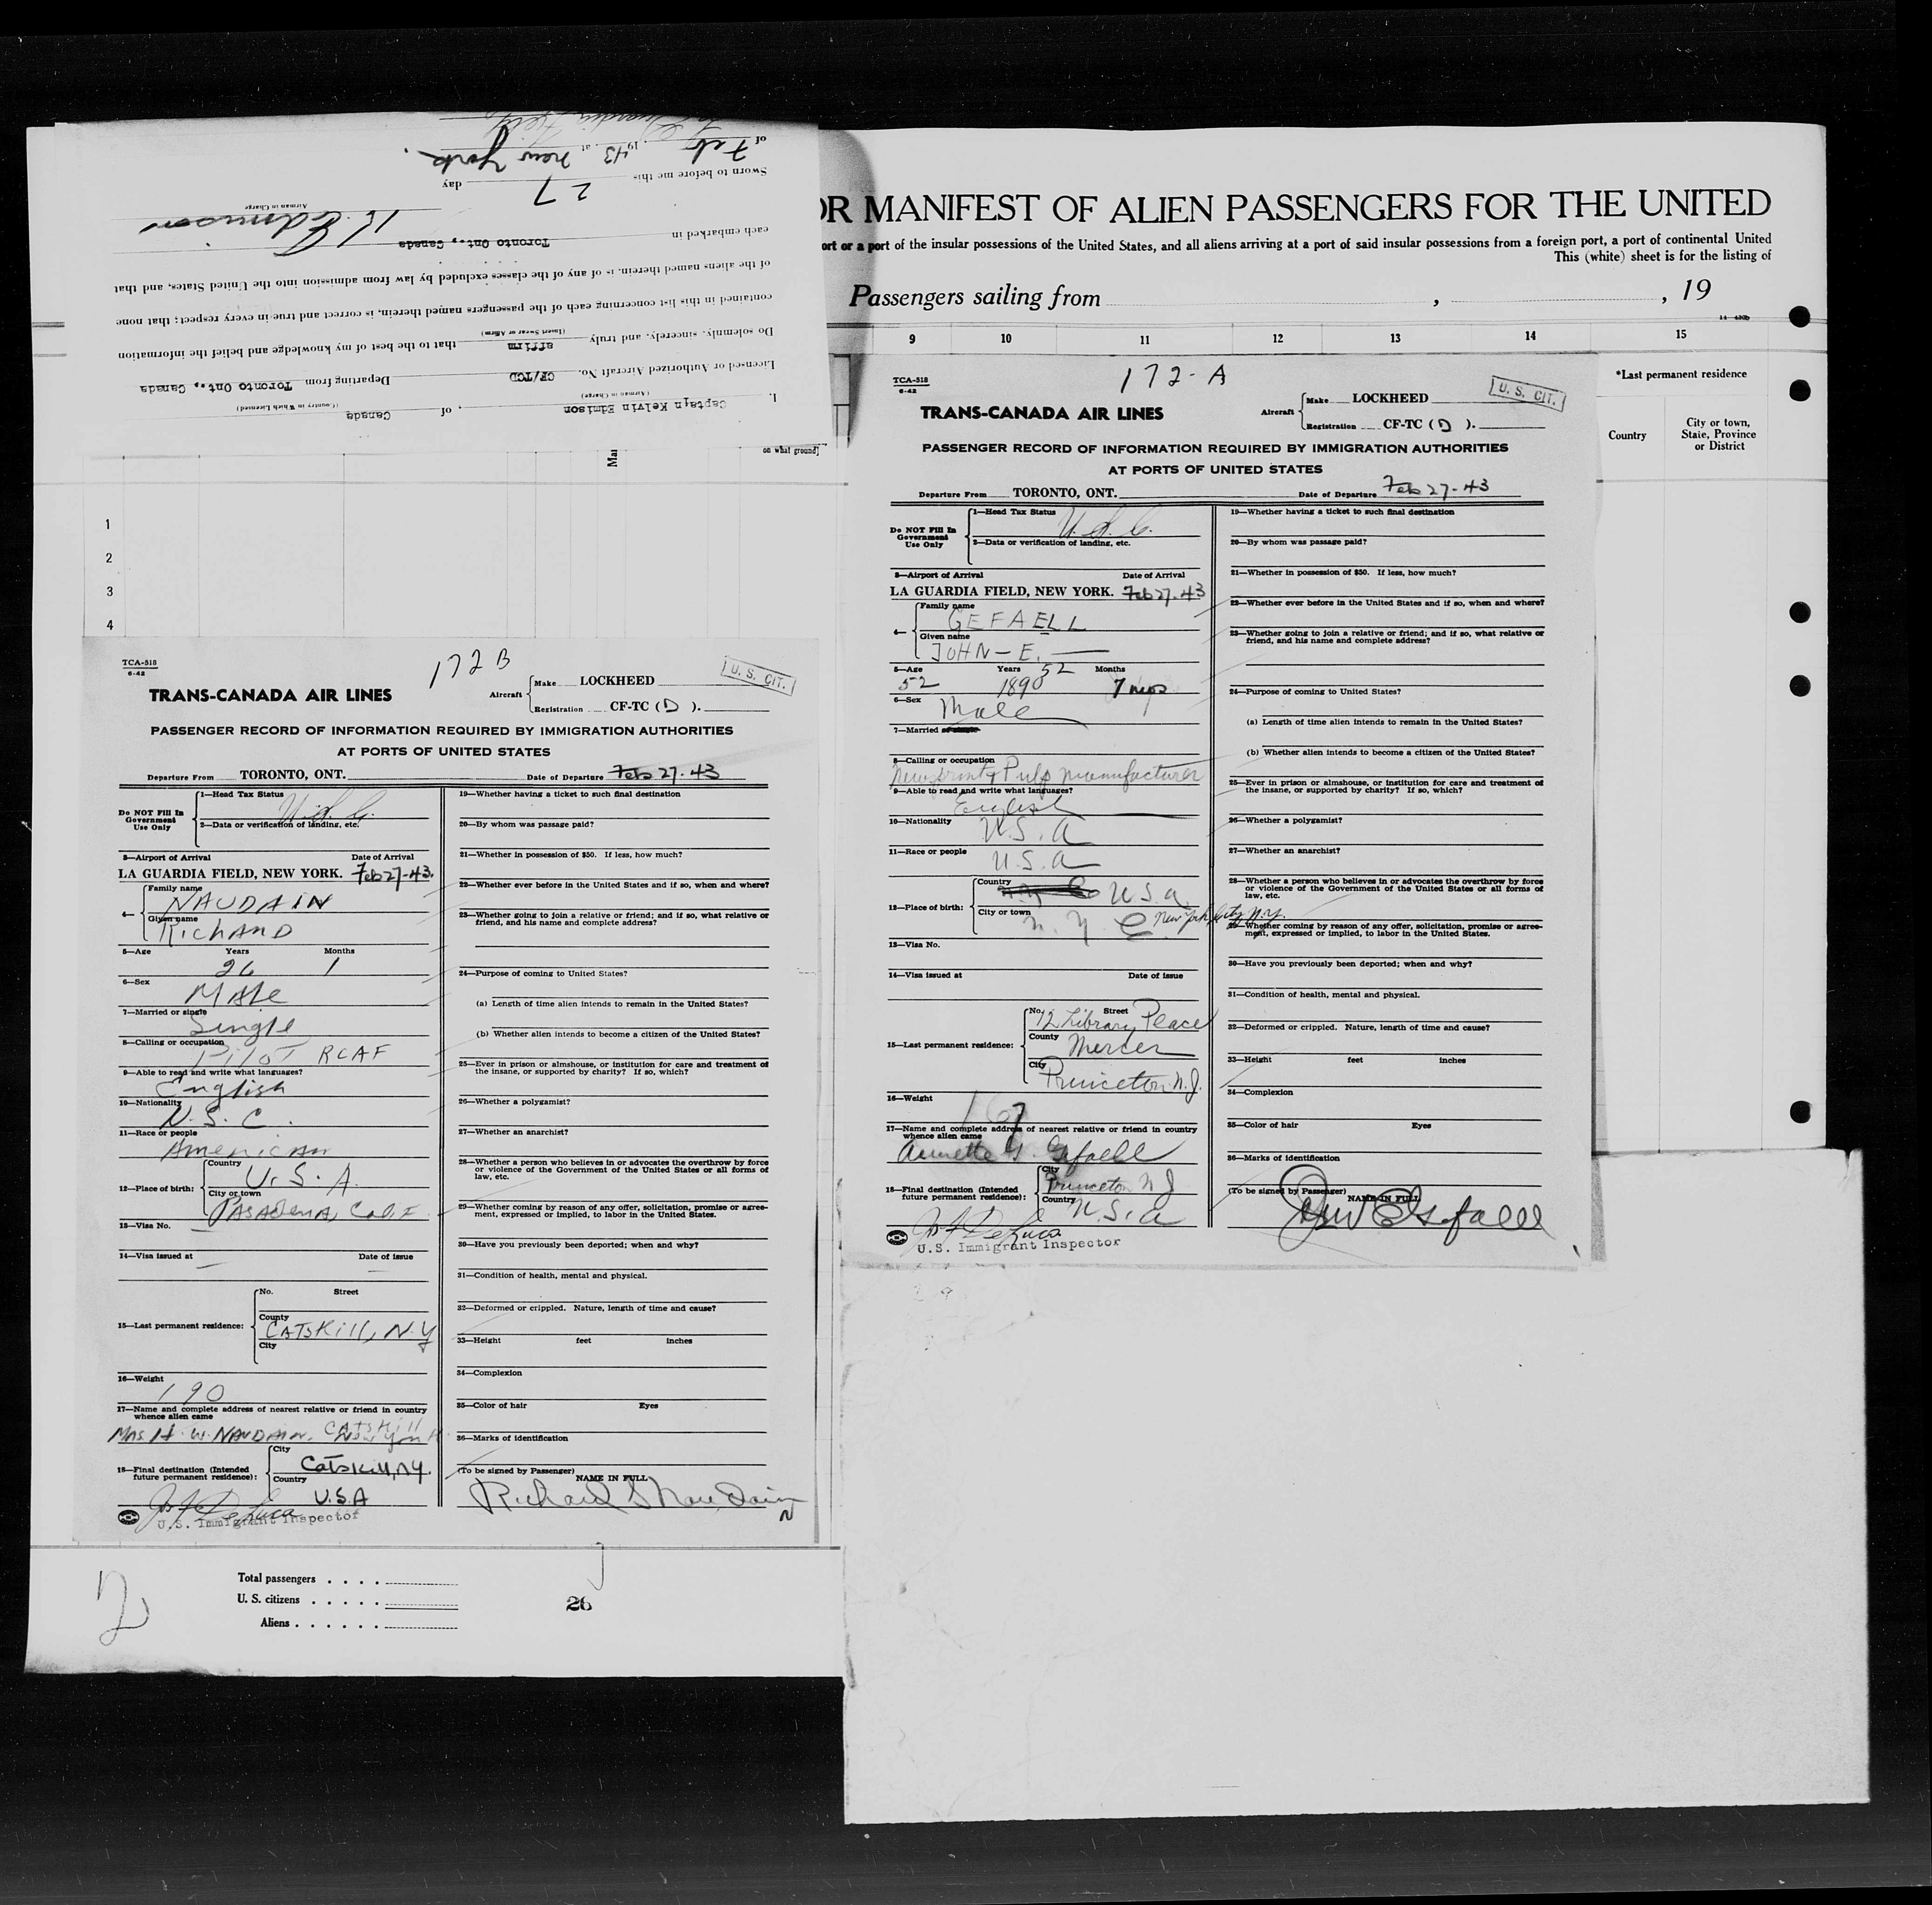 I, Captain Kelvin Edmison, of Canada
(Airman in Charge) (Country in Which Licensed)
Licensed or Authorized Aircraft No. CF/TCD Departing from Toronto Ont., Canada
Do solemnly, sincerely, and truly affirm that to the best of my knowledge and belief the information
(Insert Swear or Affirm)
contained in this list concerning each of the passengers named therein, is correct and true in every respect; that none
of the aliens named therein, is of any of the classes excluded by law from admission into the United States, and that
each embarked in Toronto Ont., Canada
K. Edmison
Airman in Charge
Sworn to before me this 27 day
of Feb, 1943, at New York.
La Guardia Field
on what ground]
1
2
3
4
TCA-518
6-42
172 B
U. S. CIT.
TRANS-CANADA AIR LINES
Aircraft
Make LOCKHEED
Registration CF-TC ( D ).
PASSENGER RECORD OF INFORMATION REQUIRED BY IMMIGRATION AUTHORITIES
AT PORTS OF UNITED STATES
Departure From TORONTO, ONT. Date of Departure Feb 27-43
Do NOT Fill In
Government
Use Only
1—Head Tax Status
U.S.C.
2—Data or verification of landing, etc.
3—Airport of Arrival Date of Arrival
LA GUARDIA FIELD, NEW YORK. Feb 27-43.
4—
Family name
NAUDAIN
Given name
RichARD
5—Age Years Months
26 1
6—Sex
MAle
7—Married or single
Single
8—Calling or occupation
Pilot RCAF
9—Able to read and write what languages?
English
10—Nationality
U.S.C.
11—Race or people
American
12—Place of birth:
Country
U.S.A.
City or town
PASAdenA, CAliF.
13—Visa No.
14—Visa issued at Date of issue
15—Last permanent residence:
No. Street
County
CATSKill, N.Y
City
16—Weight
190
17—Name and complete address of nearest relative or friend in country
whence alien came
MRS. H. W. NAUDAIN. CATSKill New York
18—Final destination (Intended
future permanent residence):
City
Catskill, N.Y.
Country
U.S.A
U.S. Immigrant Inspector
19—Whether having a ticket to such final destination
20—By whom was passage paid?
21—Whether in possession of $50. If less, how much?
22—Whether ever before in the United States and if so, when and where?
23—Whether going to join a relative or friend; and if so, what relative or
friend, and his name and complete address?
24—Purpose of coming to United States?
(a) Length of time alien intends to remain in the United States?
(b) Whether alien intends to become a citizen of the United States?
25—Ever in prison or almshouse, or institution for care and treatment of
the insane, or supported by charity? If so, which?
26—Whether a polygamist?
27—Whether an anarchist?
28—Whether a person who believes in or advocates the overthrow by force
or violence of the Government of the United States or all forms of
law, etc.
29—Whether coming by reason of any offer, solicitation, promise or agree-
ment, expressed or implied, to labor in the United States.
30—Have you previously been deported; when and why?
31—Condition of health, mental and physical.
32—Deformed or crippled. Nature, length of time and cause?
33—Height feet inches
34—Complexion
35—Color of hair Eyes
36—Marks of identification
(To be signed by Passenger) NAME IN FULL
Richard S Naudain
N
2
Total passengers
U. S. citizens
Aliens
26
OR MANIFEST OF ALIEN PASSENGERS FOR THE UNITED
ort or a port of the insular possessions of the United States, and all aliens arriving at a port of said insular possessions from a foreign port, a port of continental United
This (white) sheet is for the listing of
Passengers sailing from , , 19
9 10 11 12 13 14 15
*Last permanent residence
Country
City or town,
State, Province
or District
TCA-518
6-42
172-A
U. S. CIT.
TRANS-CANADA AIR LINES
Aircraft
Make LOCKHEED
Registration CF-TC ( D ).
PASSENGER RECORD OF INFORMATION REQUIRED BY IMMIGRATION AUTHORITIES
AT PORTS OF UNITED STATES
Departure From TORONTO, ONT. Date of Departure Feb 27-43
Do NOT Fill In
Government
Use Only
1—Head Tax Status
U.S.C.
2—Data or verification of landing, etc.
3—Airport of Arrival Date of Arrival
LA GUARDIA FIELD, NEW YORK. Feb 27-43
4—
Family name
GEFAELL
Given name
JOHN-E.
5—Age Years 52 Months
52 1890 7 mos
6—Sex
Male
7—Married or single
8—Calling or occupation
Newsprint & Pulp manufacturer
9—Able to read and write what languages?
English
10—Nationality
U.S.A
11—Race or people
U.S.A
12—Place of birth:
Country
U.S.A.
City or town
N.Y.C New York City N.Y.
13—Visa No.
14—Visa issued at Date of issue
15—Last permanent residence:
No. Street
72 Library Place
County
Mercer
City
Princeton N.J.
16—Weight
167
17—Name and complete address of nearest relative or friend in country
whence alien came
Annette G. Gefaell
18—Final destination (Intended
future permanent residence):
City
Princeton N J
Country
U.S.A
U.S. Immigrant Inspector
19—Whether having a ticket to such final destination
20—By whom was passage paid?
21—Whether in possession of $50. If less, how much?
22—Whether ever before in the United States and if so, when and where?
23—Whether going to join a relative or friend; and if so, what relative or
friend, and his name and complete address?
24—Purpose of coming to United States?
(a) Length of time alien intends to remain in the United States?
(b) Whether alien intends to become a citizen of the United States?
25—Ever in prison or almshouse, or institution for care and treatment of
the insane, or supported by charity? If so, which?
26—Whether a polygamist?
27—Whether an anarchist?
28—Whether a person who believes in or advocates the overthrow by force
or violence of the Government of the United States or all forms of
law, etc.
29—Whether coming by reason of any offer, solicitation, promise or agree-
ment, expressed or implied, to labor in the United States.
30—Have you previously been deported; when and why?
31—Condition of health, mental and physical.
32—Deformed or crippled. Nature, length of time and cause?
33—Height feet inches
34—Complexion
35—Color of hair Eyes
36—Marks of identification
(To be signed by Passenger) NAME IN FULL
John E Gefaell